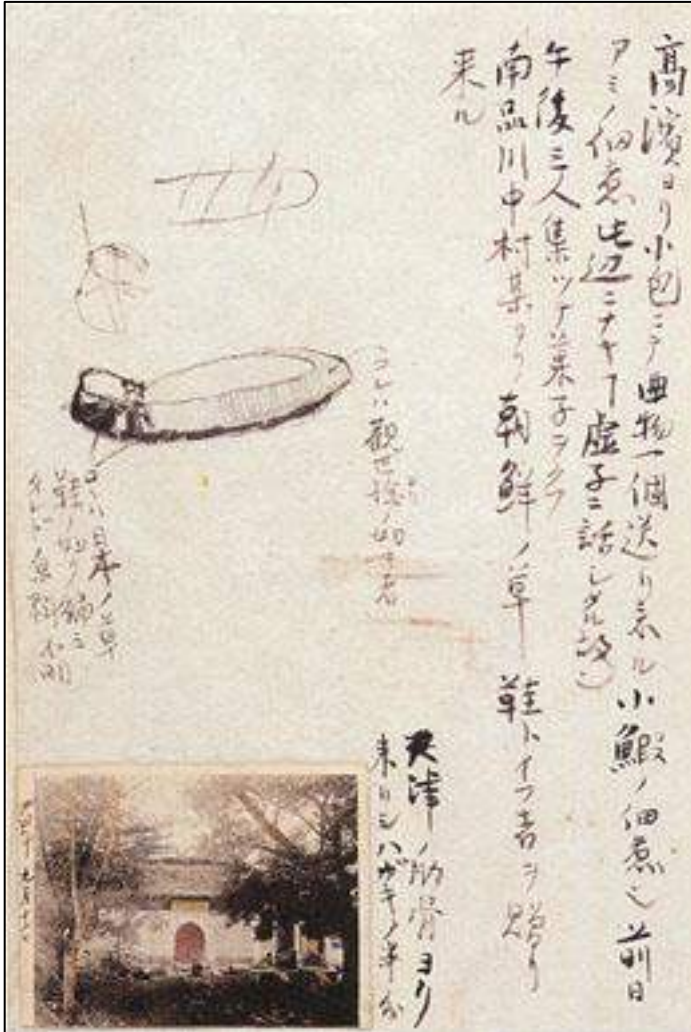 高濱ヨリ小包ニテ曲物一個送リ来ル小鰕ノ佃煮也前日
アミノ佃煮此辺ニナキヿ虚子ニ話シタル故也
午後三人集ツテ菓子ヲクフ
南品川中村某ヨリ朝鮮ノ草鞋トイフ者ヲ贈リ
来ル
コレハ観世捻ノ如キ者
コヽハ日本ノ草
鞋ノ如ク編ミ
天津ノ肋骨ヨリ
来リシハガキノ半分